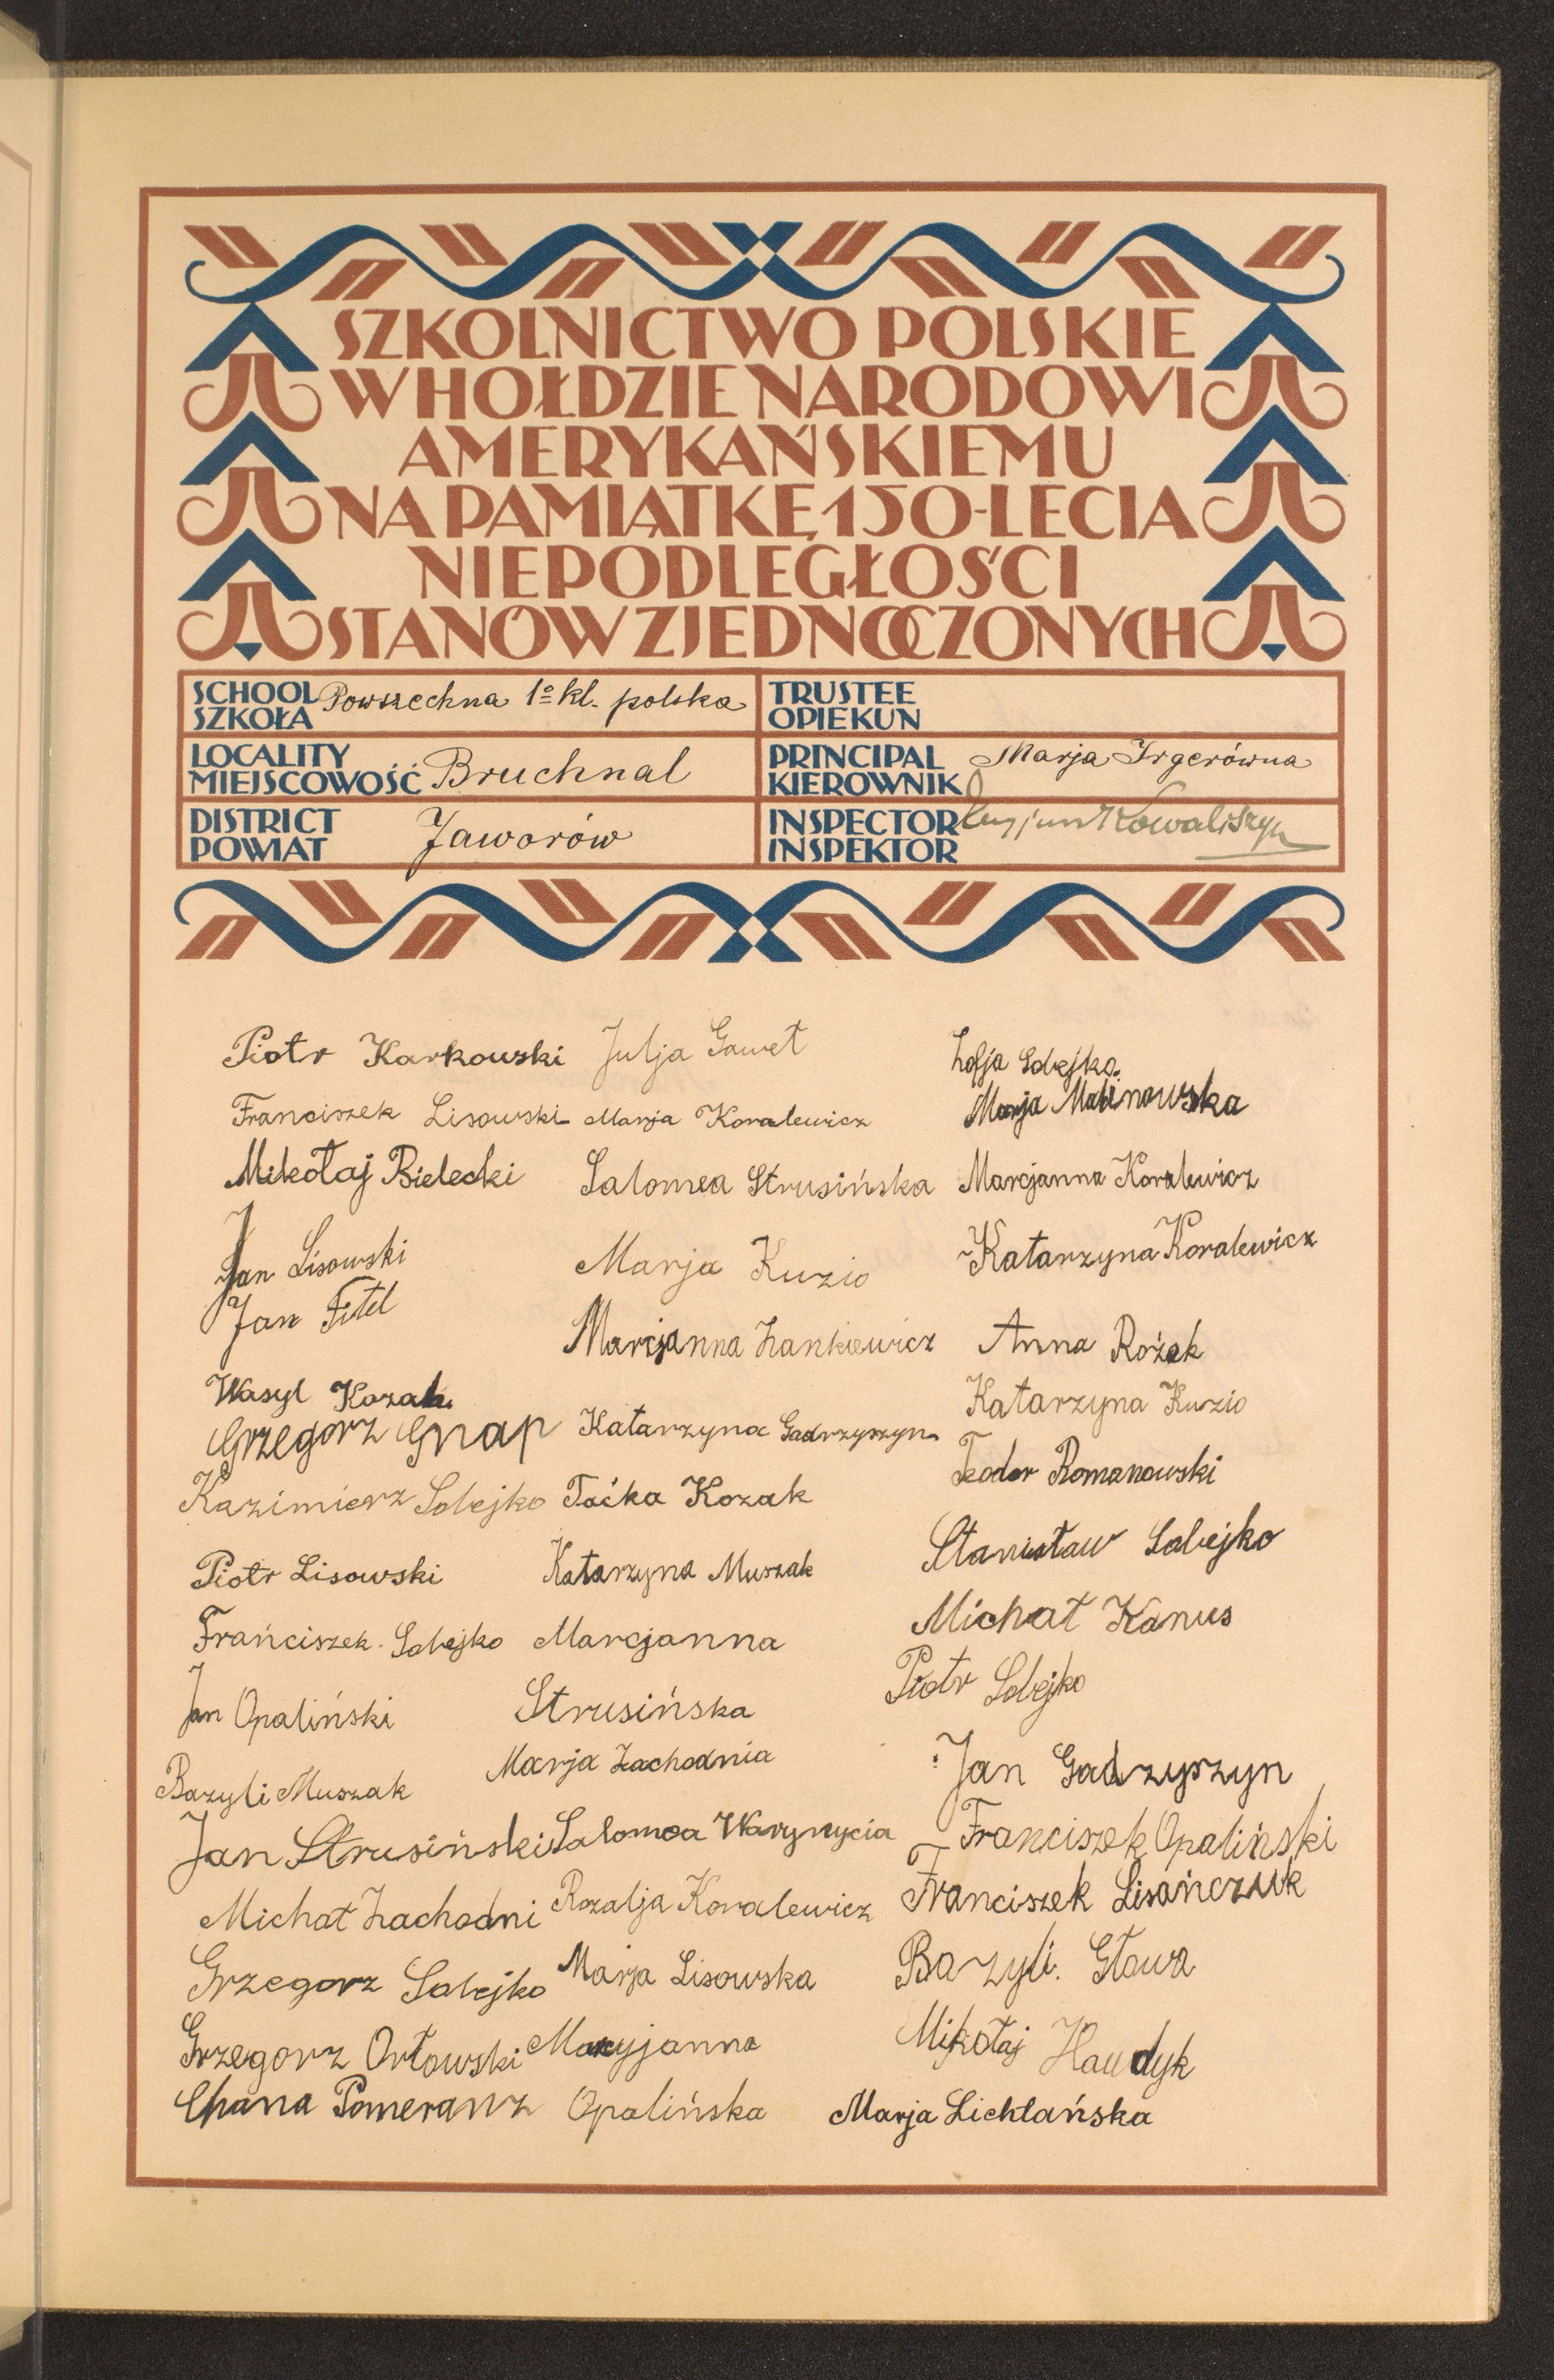 SZKOLNICTWO POLSKIE
W HOŁDZIE NARODOWI
AMERYKAŃSKIEMU
NA PAMIĄTKĘ 150-LECIA
NIEPODLEGŁOŚCI
STANÓW ZJEDNOCZONYCH
SCHOOL
SZKOŁA
Powszechna 1o kl. polska
TRUSTEE
OPIEKUN
LOCALITY
MIEJSCOWOŚĆ
Bruchnal
PRINCIPAL
KIEROWNIK
Marja Irgerówna
DISTRICT
POWIAT
Jaworów
INSPECTOR
INSPEKTOR
Kowaliszyn
Piotr Karkowski
Franciszek Lisowski
Mikołaj Bielecki
Jan Lisowski
Jan Fitel
Wasyl Kozak
Grzegorz Gnap
Kazimierz Sobejko
Piotr Lisowski
Frańciszek Sobejko
Jan Opaliński
Bazyli Muszak
Jan Strusiński
Michał Zachodni
Grzegorz Sobejko
Grzegorz Orłowski
Chana Pomeranz
Julja Gaweł
Marja Koralewicz
Salomea Strusińska
Marja Kuzio
Marcjanna Zankiewicz
Katarzyna Gadrzyszyn
Taćka Kozak
Katarzyna Muszak
Marcjanna
Strusińska
Marja Zachodnia
Salomea
Rozalja Koralewicz
Marja Lisowska
Marcyjanna
Opalińska
Zofja Sobejko
Marja Malinowska
Marcjanna Koralewicz
Katarzyna Koralewicz
Anna Rożek
Katarzyna Kuzio
Teodor Romanowski
Stanisław Sobejko
Michał Kanus
Piotr Sobejko
Jan Gadzyszyn
Franciszek Opaliński
Franciszek Lisańczuk
Bazyli. Gława
Mikołaj Haudyk
Marja Lichtańska